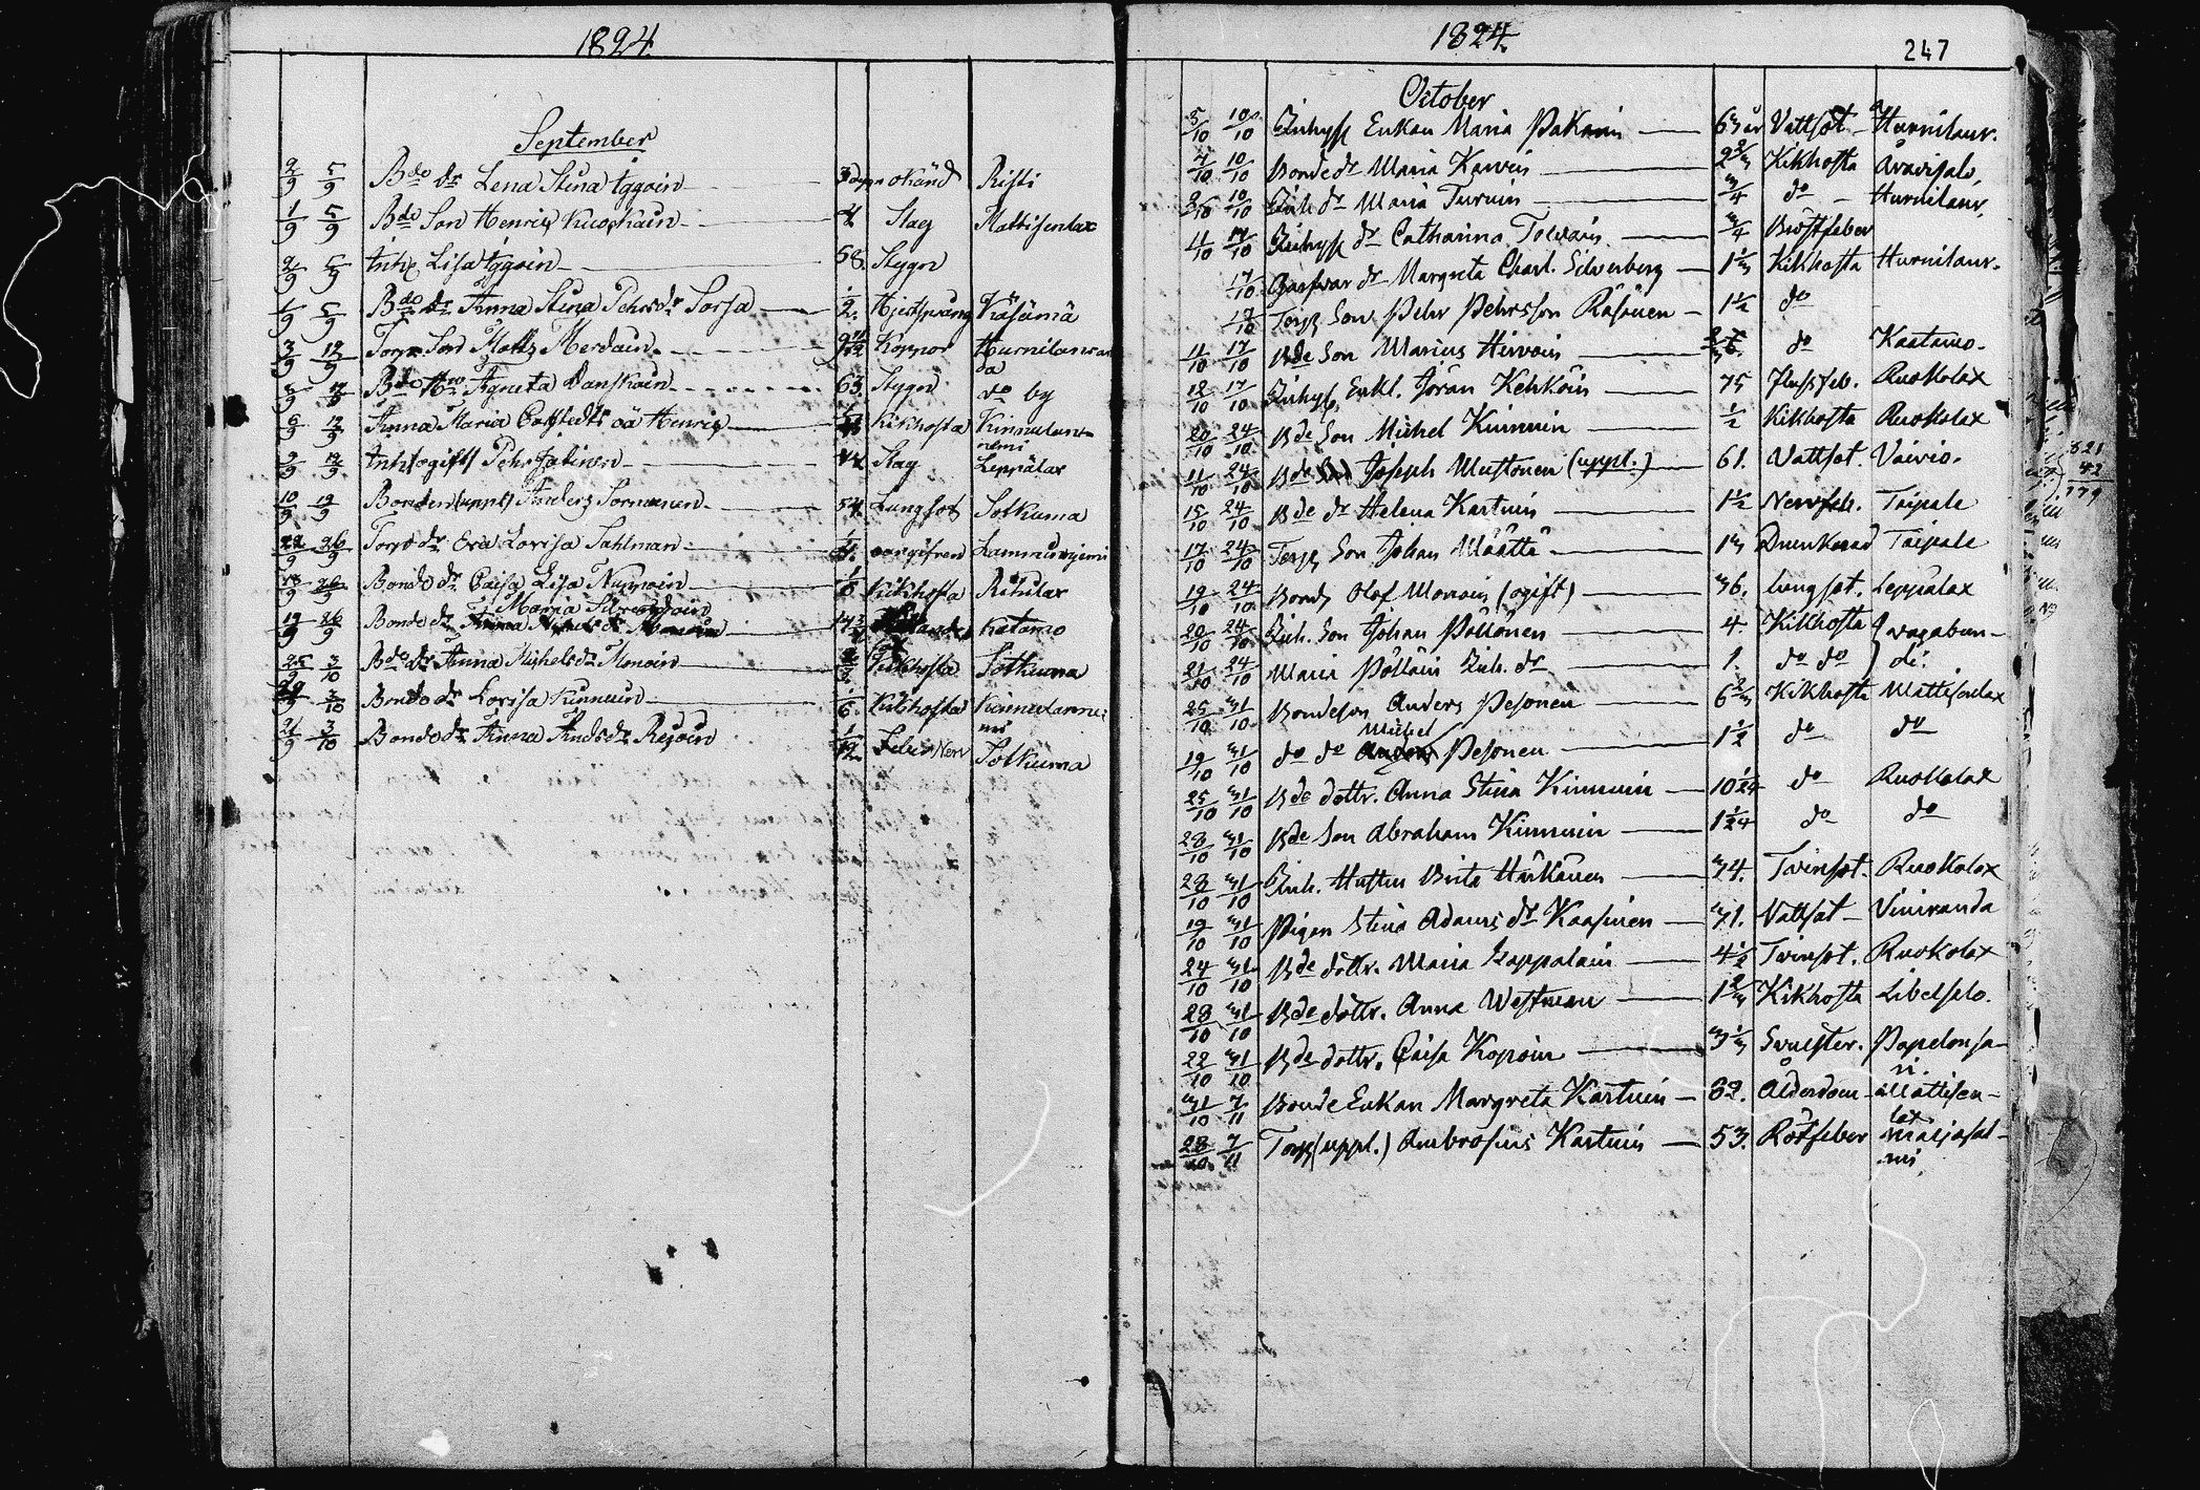 1824.
September
2/9 5/9 Bde dr Lena Stina Iggoin 3 dagar okänd Risti
1/9 5/9 Bde Son Henric Kuoskain 4 Slag Mattisenlax
2/9 5/9 Inh. Lisa Iggoin 58. Stygn
1/9 5/9 Bde dr Anna Stina Pehrsdr Sorsa 1/2. Hjertsprång Käsämä
3/9 12/9 Torp. Son Matts Merdain. Koppor Hurnilanran
da
12/9 Bde Agneta Danskain 63. Stygn do by
6/9 12/9 Anna Maria oä Henric Kikhosta Kinnulan
nemi
9/9 12/9 Inh. (ogift) Pehr Jalinen Slag Leppälax
10/9 19/9 Bonden (uppl) Anders Sormunen 54. Lungsot Sotkuma
22/9 26/9 Torp dr Eva Lovisa Sahlman oangifven Lammuniemi
26/9 Bonde dr Caisa Lisa Nuppoin Kikhosta Rihilax
Maria
19/9 26/9 Bonde dr Katamo
25/9 3/10 Bde dr Anna Michelsdr Monoin Kikhosta Sotkuma
3/10 Bonde dr Lovisa Kinnuin 1/6. Kikhosta Kinnulannie
mi
21/9 3/10 Bonde dr Anna Andsdr Rejoin 1/12 Feber Nerv Sotkuma
1824.
247
October
5/10 10/10 Inhys Enkan Maria Pakarin 63 år Vattsot Hurnilanr.
4/10 10/10 Bonde dr Maria Karvin 2 2/3 Kikhosta Aravisalo,
8/10 10/10 Inh dr Maria Turuin 3/4 do Hurnilanr,
4/10 17/10 Inhys dr Catharina Tolvain 3/4 Bröstfeber
17/10 Garfvar dr Margreta Charl. Silverberg 1 1/3 Kikhosta Hurnilanr.
17/10 Torp Son Pehr Pehrsson Räsänen 1 1/2 do
11/10 17/10 Bde Son Marius Hirvoin do Kaatamo.
12/10 17/10 Inhys, Enkl. Jöran Kehköin 75 Flussfeb. Ruokolax
20/10 24/10 Bde Son Michel Kinnuin 1/2 Kikhosta Ruokolax
11/10 24/10 Bde Joseph Mustonen (uppl.) 61. Vattsot. Vaivio.
15/10 24/10 Bde dr Helena Kartuin 1 1/2 Nervfeb. Taipale
17/10 24/10 Torp Son Johan Määttä Drunknad Taipale
19/10 24/10 Bonds Olof Monoin (ogift) 36. lungsot. Leppälax
20/10 24/10 Inh. Son Johan Pöllönen 4. Kikhosta } vagabun-
21/10 24/10 Maria Pölläin Inh. dr 1. do do } di.
25/10 31/10 Bondeson Anders Pesonen 6 2/3 Kikhosta Mattisenlax
Michel
19/10 31/10 do do Anders Pesonen 1 1/2 do do
25/10 31/10 Bde dottr. Anna Stina Kinnuin 10 1/24 do Ruokolax
28/10 31/10 Bde Son Abraham Kinnuin 1 1/24 do do
28/10 31/10 Inh. Hustru Brita Härkönen 34. Tvinsot. Ruokolax
19/10 31/10 Pigan Stina Adamsdr Kaasinen 31. Vattsot Viniranda
24/10 31/10 Bde dottr. Maria Lappalain 4 1/2 Tvinsot. Ruokolax
28/10 31/10 Bde dottr. Anna Westman 1 2/3 Kikhosta Libelsalo.
22/10 31/10 Bde dottr. Caisa Kopoin 3 1/3 Svulster. Papelonsa-
ri.
31/10 7/11 Bonde Enkan Margreta Kartuin 82. Ålderdom Mattisen-
lax
28/10 7/11 Torp (uppl.) Ambrosius Kartuin 53. Rötfeber Maljasal-
mi
821
42
779